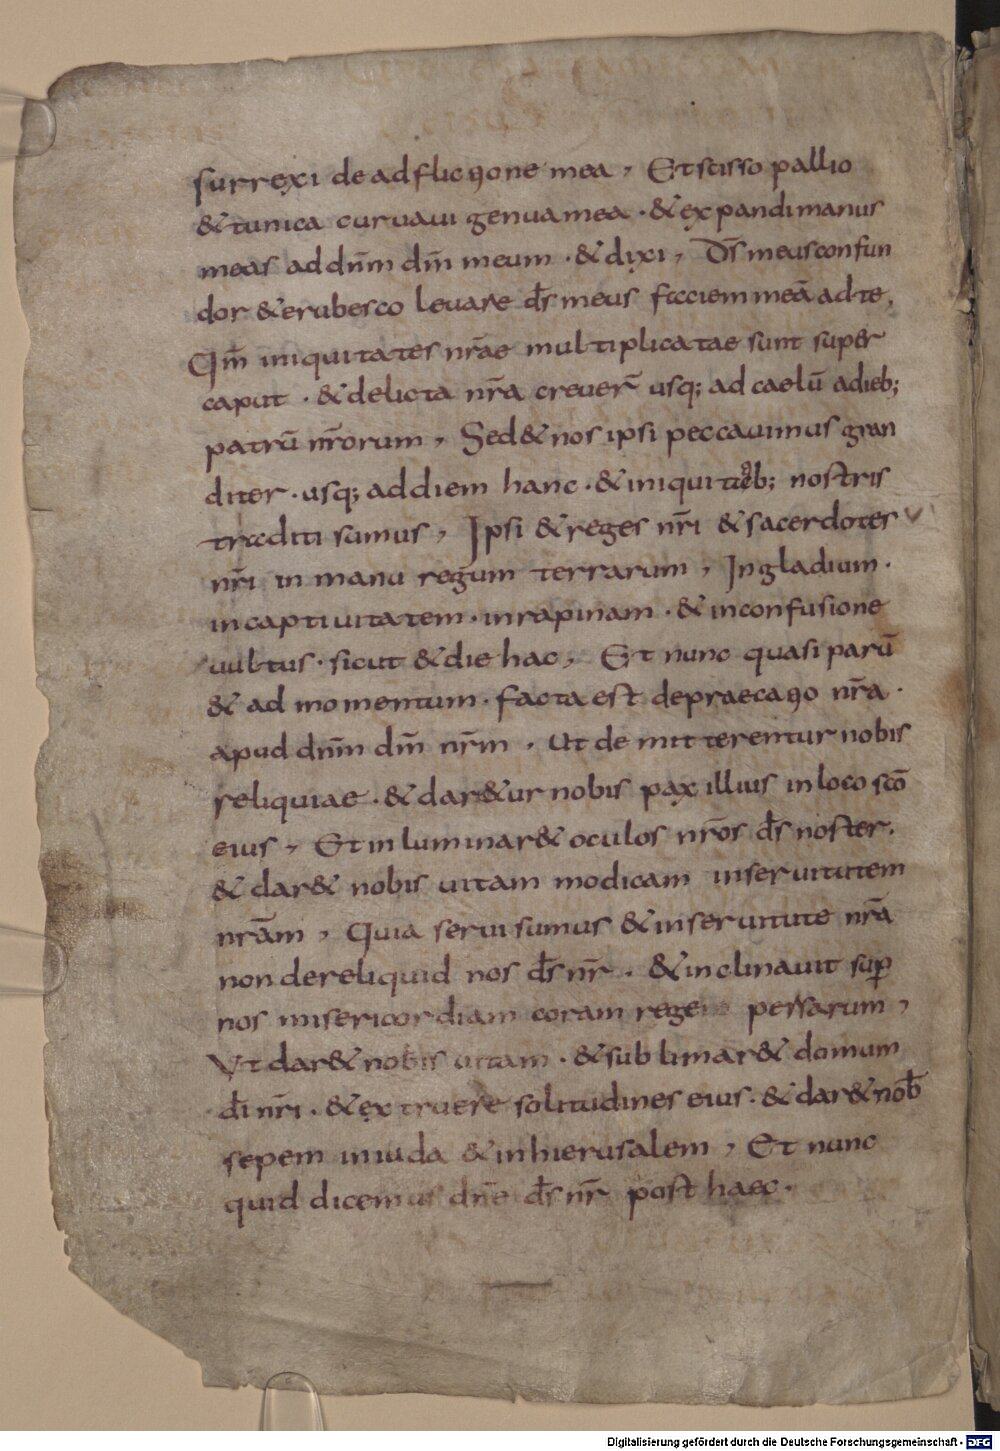 surrexi de adflictione mea, Et scisso pallio
& tunica curuaui genua mea · & expandi manus
meas ad dn̄m dm̄ meum · & dixi, Ds̄ meus confun
dor & erubesco leuare ds̄ meus faciem meā ad te,
Qm̄ iniquitates nr̄ae multiplicatae sunt super
caput · & delicta nr̄a creuer̄ usq; ad caelū a dieb;
patrū nr̄orum, Sed & nos ipsi peccauimus gran
diter · usq; ad diem hanc · & iniquitatib; nostris
traditi sumus, Ipsi & reges nr̄i & sacerdotes
nr̄i in manu regum terrarum, In gladium ·
in captiuitatem · in rapinam · & in confusione
uultus · sicut & die hac, Et nunc quasi parū
& ad momentum · facta est depraecatio nr̄a ·
apud dn̄m dm̄ nr̄m, Ut demitterentur nobis
reliquiae · & dar&ur nobis pax illius in loco sc̄o
eius, Et inluminar& oculos nr̄os ds̄ noster.
& dar& nobis uitam modicam in seruitutem
nr̄am, Quia serui sumus & in seruitute nr̄a
non dereliquid nos ds̄ nr̄ · & inclinauit sup̄
nos misericordiam coram rege persarum,
Vt dar& nobis uitam · & sublimar& domum
dī nr̄i · & extruere solitudines eius · & dar& nob̄
sepem in iuda & in hierusalem, Et nunc
quid dicemus dn̄e ds̄ nr̄ post haec ·
Digitalisierung gefördert durch die Deutsche Forschungsgemeinschaft - DFG